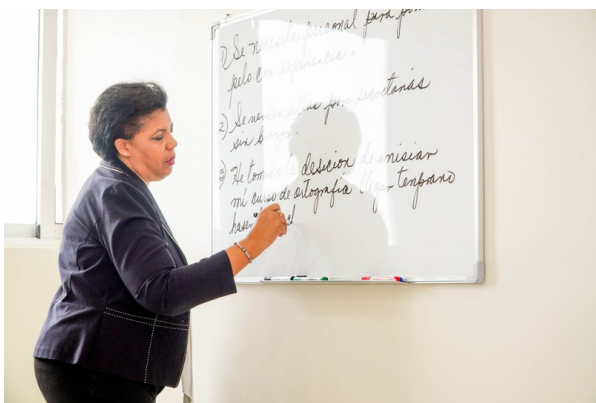 1) Se necesita personal para
pelo con experiencia.
2) Se venden sillas para secretarias
sin brazos.
3) He tomado la desicion de inisiar
mi curso de ortografía llegar temprano